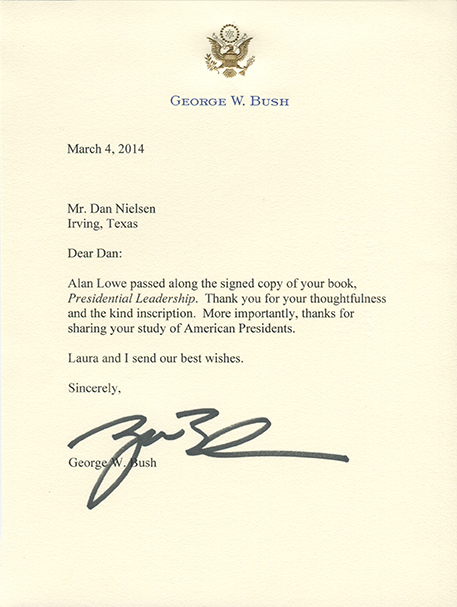 GEORGE W. BUSH
March 4, 2014
Mr. Dan Nielsen
Irving, Texas
Dear Dan:
Alan Lowe passed along the signed copy of your book,
Presidential Leadership. Thank you for your thoughtfulness
and the kind inscription. More importantly, thanks for
sharing your study of American Presidents.
Laura and I send our best wishes.
Sincerely,
George W. Bush